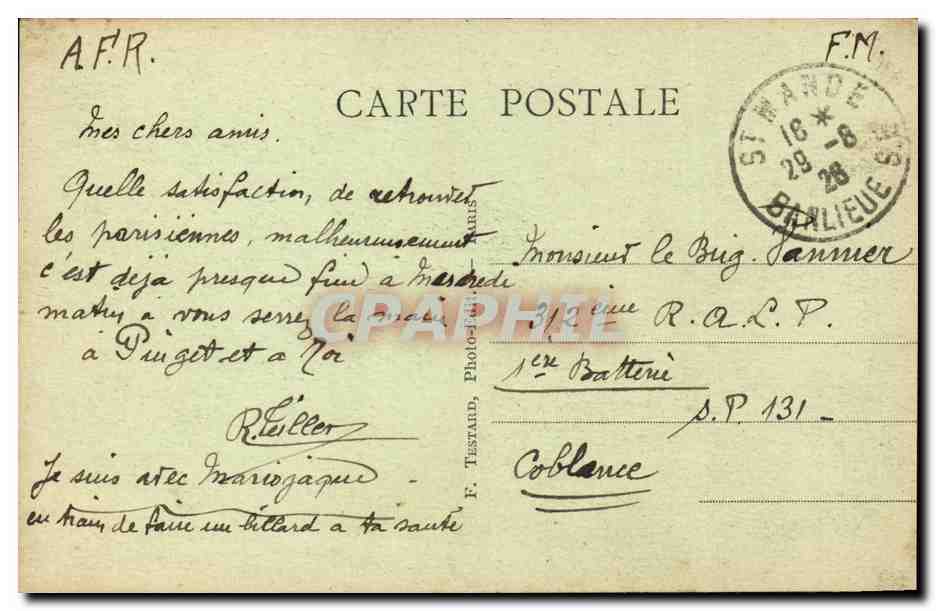 A.F.R.
F.M.
CARTE POSTALE
ST MANDE
16 * 
29 -8
28
BANLIEUE
Mes chers amis.
Quelle satisfaction, de retrouver
les parisiennes, malheureusement
c'est dejà presque fini à Mercredi
matin à vous serrez la main
à Puiget et a Toi
R. Teiller
Je suis avec Mariojaque
en train de faire un billard a ta santé
F. TESTARD, Photo-Edit. - PARIS
CPAPHIL
Monsieur le Brig. Vannier
312 eme R.A.L.P.
1ere Batterie
S.P. 131 -
Coblence